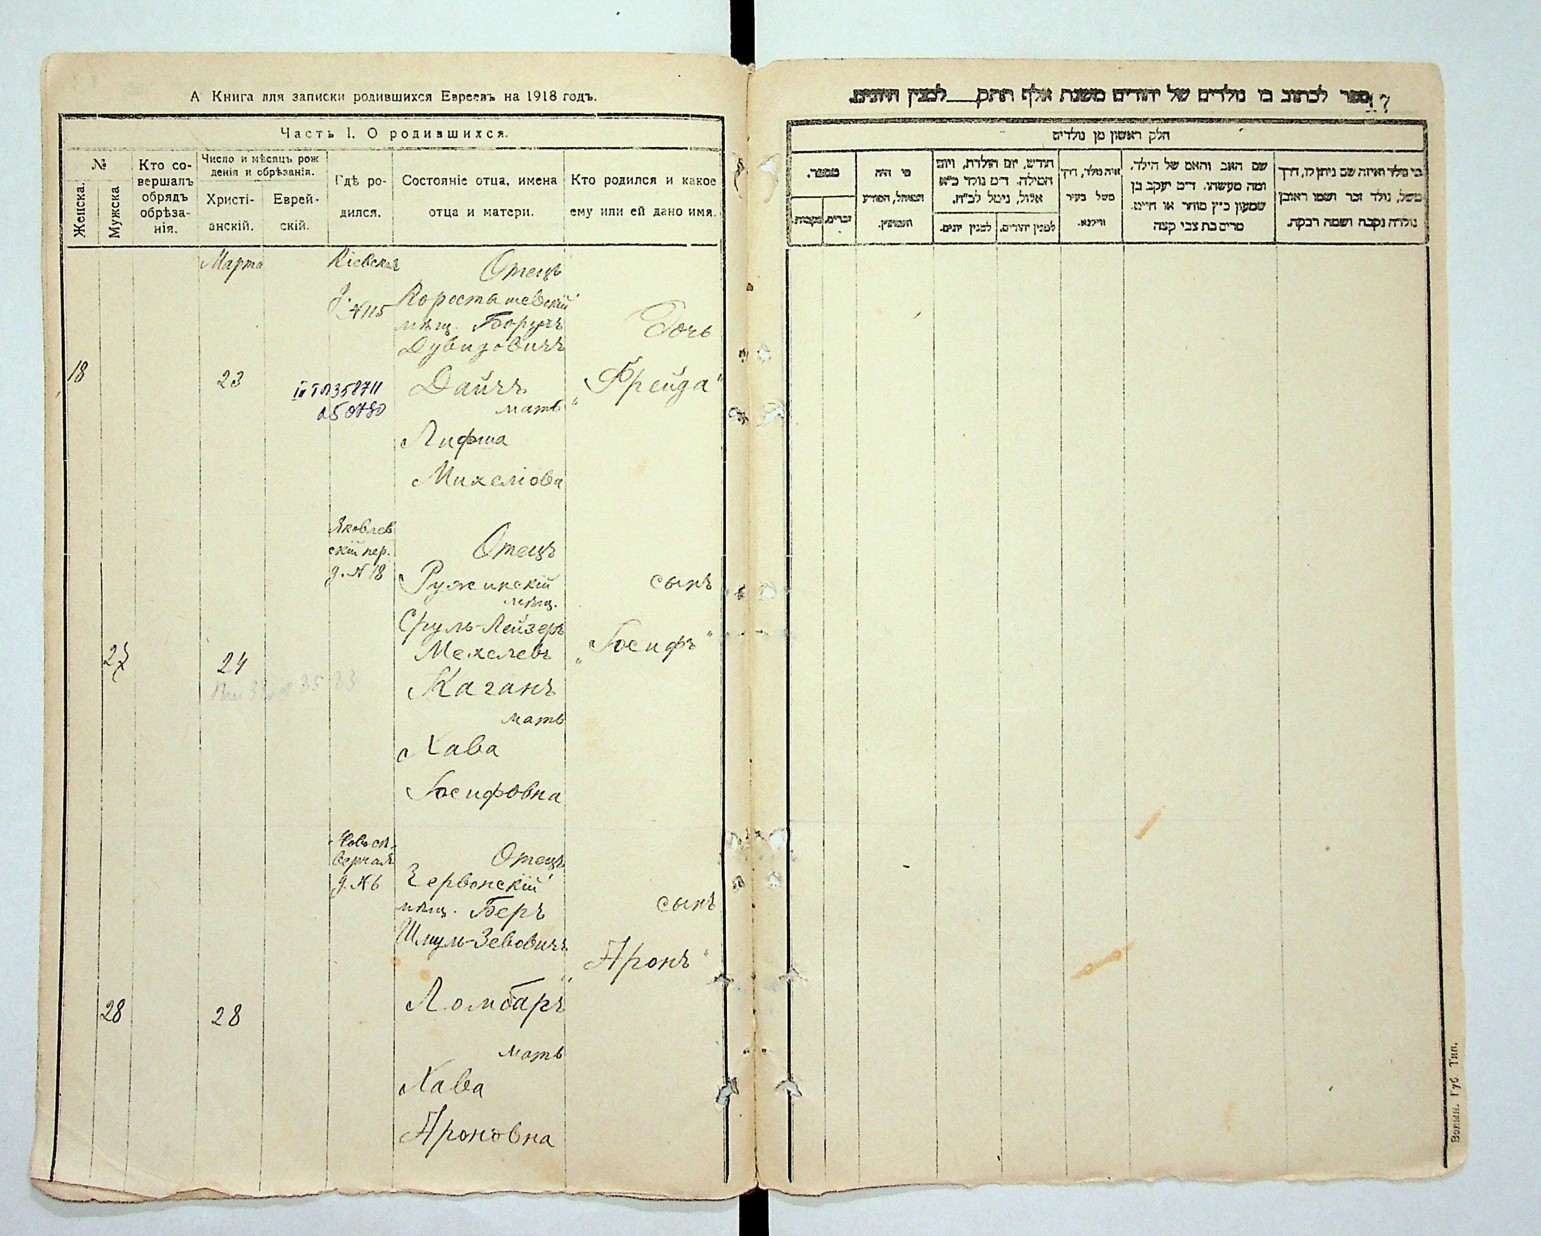 А Книга для записки родившихся Евреевъ на 1918 годъ.
Часть I. О родившихся.
№
Женска.
Мужска
Кто со-
вершалъ
обрядъ
обрѣза-
нія.
Число и мѣсяцъ рож
денія и обрѣзанія.
Христі-
анскій.
Еврей-
скій.
Гдѣ ро-
дился.
Состояніе отца, имена
отца и матери.
Кто родился и какое
ему или ей дано имя.
Марта
Кіевская
д. №115
Отецъ
Коростышевскій
мѣщ. Борухъ
Дувидовичъ
Дочь
18
23
358711
Дайчъ
„Фрейда“
мать
Лифша
Михеліова
Яковлев
скій пер.
д. № 18
Отецъ
Ружинскій
мѣщ.
сынъ
Сруль-Лейзеръ
Мехелевъ
„Іосифъ“
27
24
Каганъ
мать
Хава
Іосифовна
Новосѣ-
верная
д. №6
Отецъ
Червонскій
мѣщ. Беръ
сынъ
Шмуль-Зевовичъ
„Аронъ“
28
28
Ломбаръ
мать
Хава
Ароновна
ספר לכתוב בו נולדים של יהודים משנת אלף תתק___ למנין היונים.
17
חלק ראשון מן נולדים
מספר.
זכרים.
נקבות.
מי היה
חודש, יום הולדת, ויום
המילה. ד״מ נולד כ״א
אלול, נימול לכ״ח.
למנין יהודים.
למנין יונים.
שם האב והאם של הילד.
ומה מעשהו. ד״מ יעקב בן
שמעון כ״ץ סוחר או חייט.
מרים בת צבי קצה
מי נולד ואיזה שם ניתן לו, דרך
משל, נולד זכר ושמו ראובן
נולדה נקבה ושמה רבקה.
Волын. Губ. Тип.